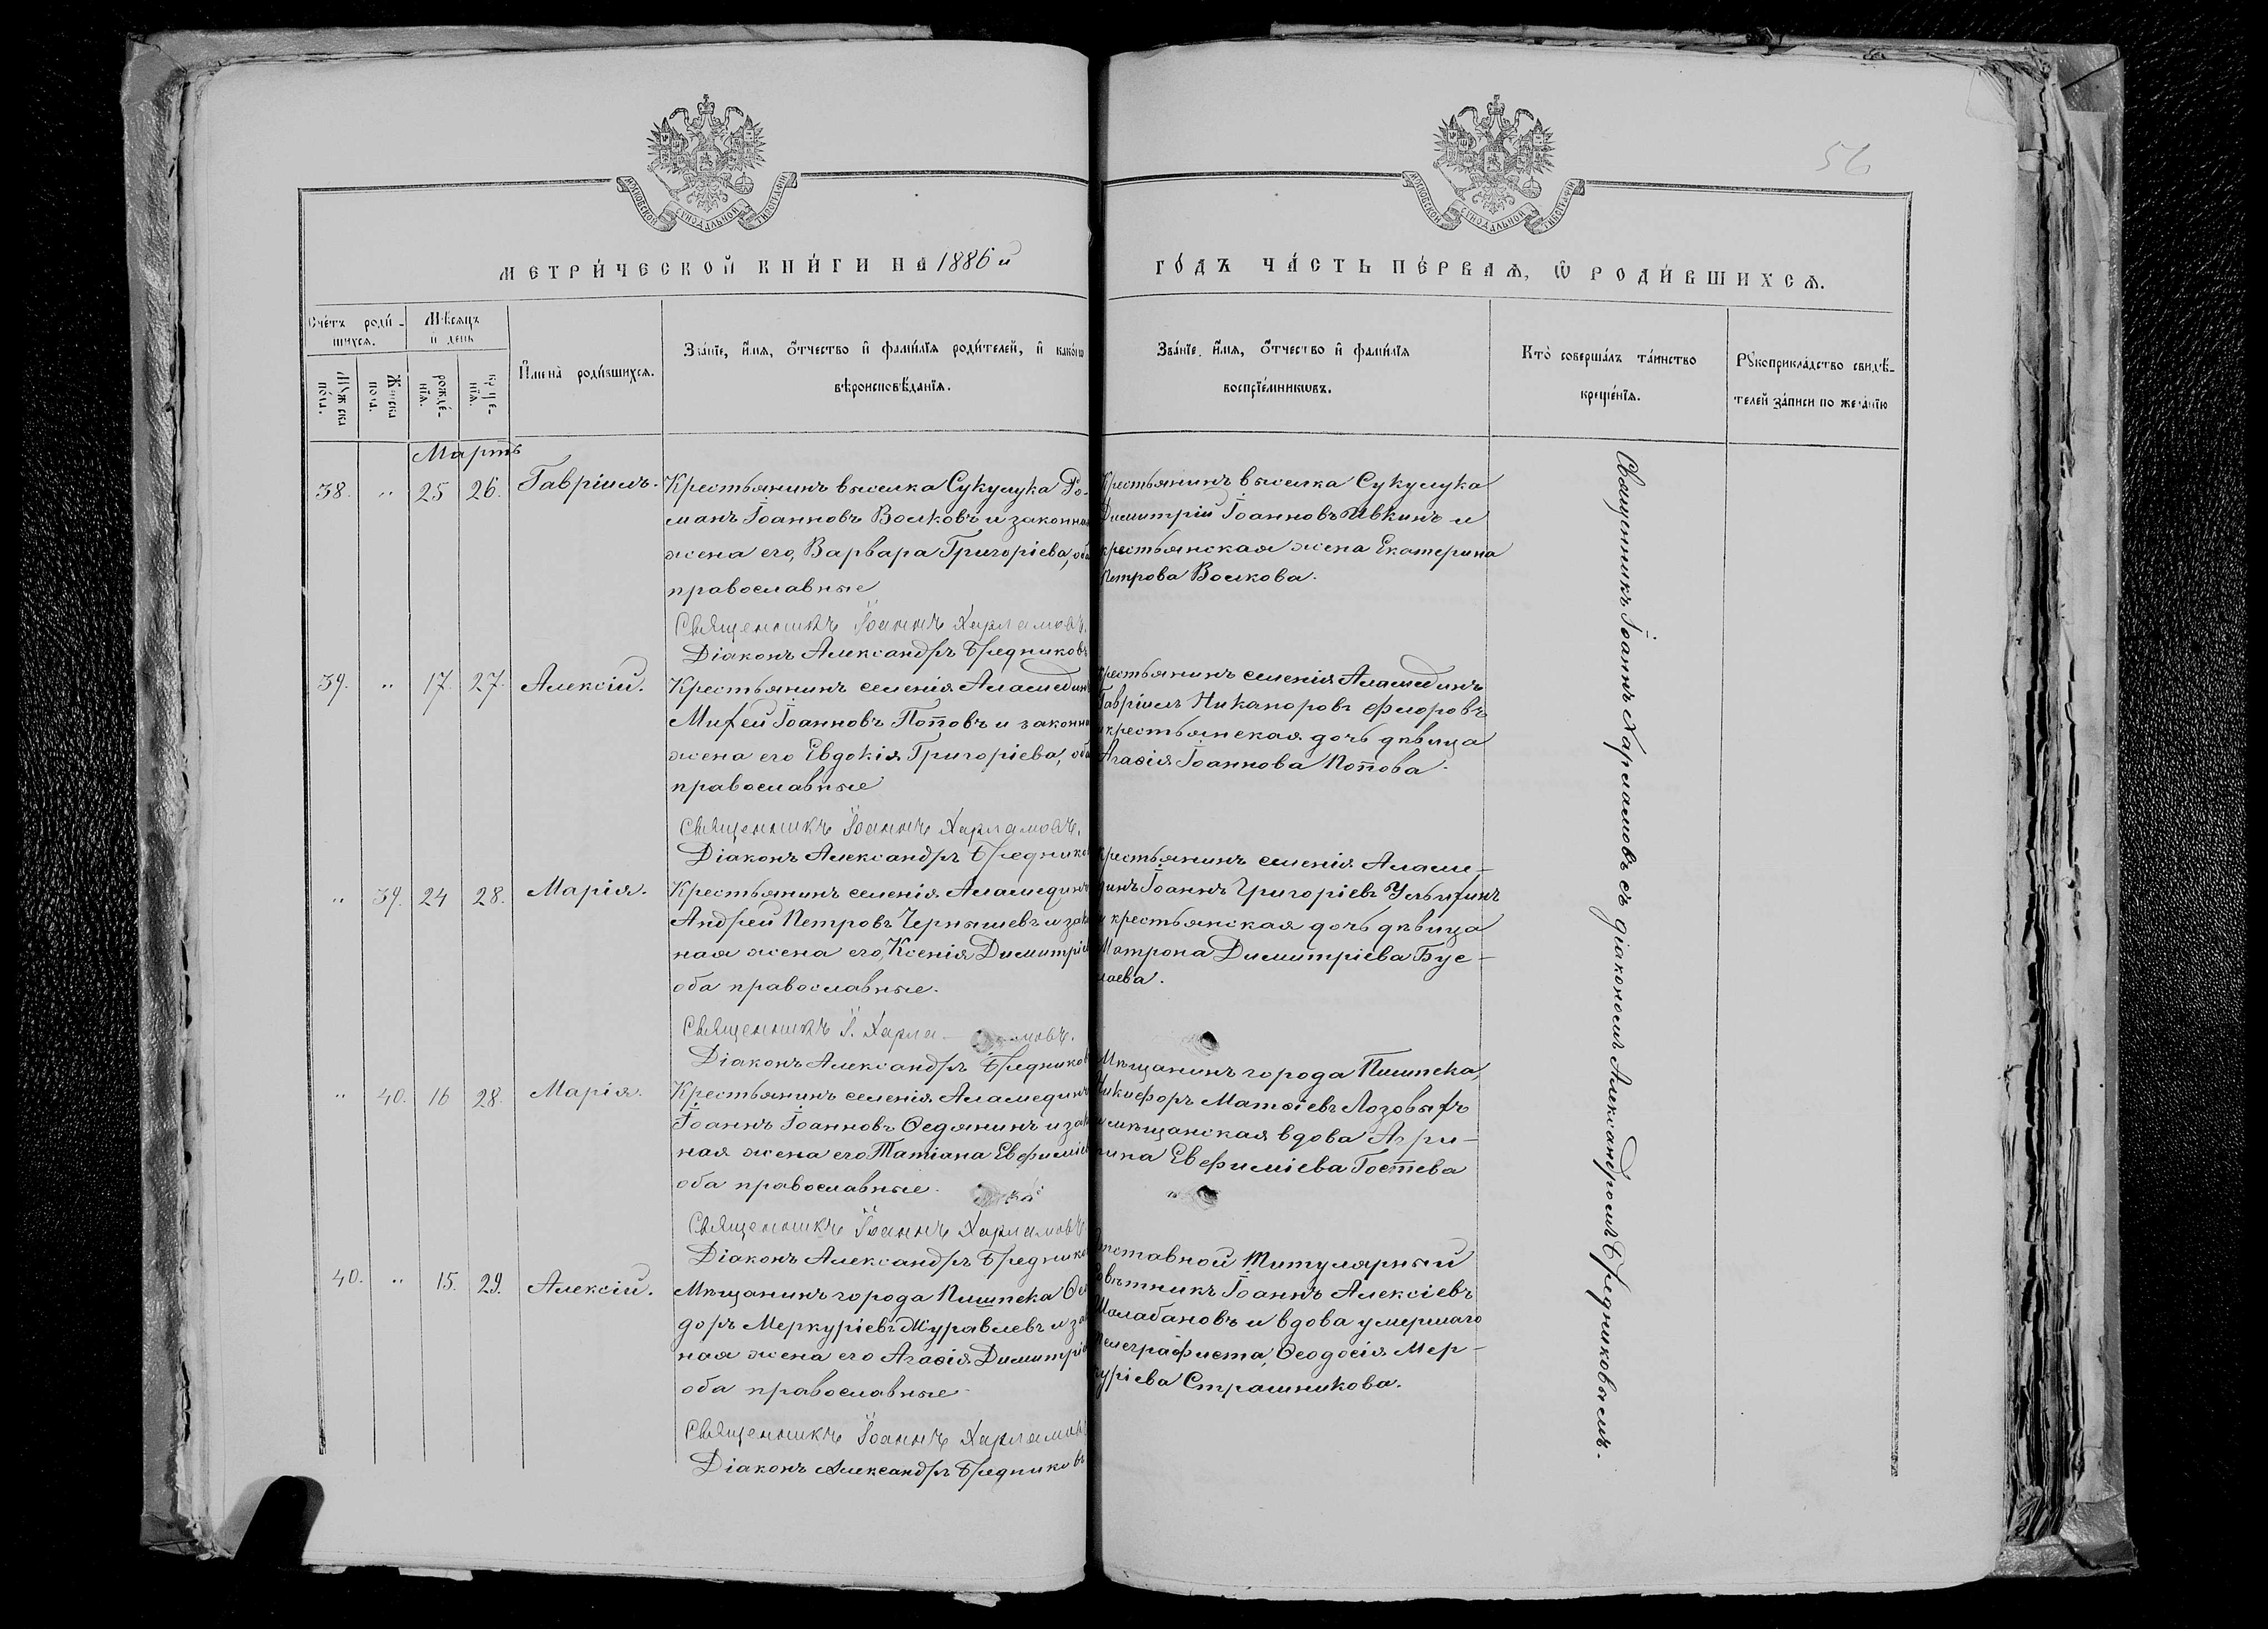 56
МОСКОВСКОЙ СѴНОДАЛЬНОЙ ТИПОГРАФІИ
МОСКОВСКОЙ СѴНОДАЛЬНОЙ ТИПОГРАФІИ
МЕТРИ́ЧЕСКОЙ КНИ́ГИ НА 1886 й
ГО́ДЪ ЧА́СТЬ ПЕ́РВАѦ, Ѽ РОДИ́ВШИХСѦ.
Сче́тъ роди́-
вшихсѧ.
Мꙋжска
по́ла.
Женска
пола.
Мѣсяцъ
и день
рожде́-
нїѧ.
креще-
нїѧ.
И҆мена̀ роди́вшихсѧ.
Зва́нїе, и҆́мѧ, ѻ҆́тчество и҆ фами́лїѧ роди́телей, и҆ како́гѡ
вѣроисповѣ́данїѧ.
Зва́нїе, и҆́мѧ, ѻ҆́тчество и҆ фами́лїѧ
воспрїе́мникѡвъ.
Кто̀ соверша́лъ та́инство
креще́нїѧ.
Рꙋкоприкла́дство свидѣ́-
телей за́писи по жела́нїю
Мартъ
38. " 25 26. Гавріилъ.
Крестьянинъ выселка Сукулука Ро-
манъ Іоанновъ Волковъ и законна
жена его, Варвара Григоріева, оба
православные
Священникъ Іоаннъ Харламовъ.
Діаконъ Александръ Бредниковъ
Крестьянинъ выселка Сукулука
Димитрій Іоанновъ Ивкинъ и
крестьянская жена Екатерина
Петрова Волкова.
39. " 17. 27. Алексій.
Крестьянинъ селенія Аламединъ
Михей Іоанновъ Поповъ и законна
жена его Евдокія Григоріева, оба
православные
Священникъ Іоаннъ Харламовъ.
Діаконъ Александръ Бреднико
Крестьянинъ селенія Аламединъ
Гавріилъ Никаноровъ Флоровъ
и крестьянская дочь дѣвица
Агаѳія Іоаннова Попова.
" 39. 24 28. Марія.
Крестьянинъ селенія Аламединъ
Андрей Петровъ Чернышевъ и зак
ная жена его, Ксенія Димитріе
оба православные.
Священникъ І. Харла-мовъ.
Діаконъ Александръ Бредников
Крестьянинъ селенія Аламе-
динъ Іоаннъ Григоріевъ Улыхинъ
и крестьянская дочь дѣвица
Матрона Димитріева Бус-
лаева.
" 40. 16 28. Марія.
Крестьянинъ селенія Аламединъ
Іоаннъ Іоанновъ Ѳедянинъ и зак
ная жена его Татіана Евфиміе
оба православные.
Священникъ Іоаннъ Харламовъ
Діаконъ Александръ Бреднико
Мѣщанинъ города Пишпека,
Никифоръ Матѳіевъ Лозовыхъ
и мѣщанская вдова Агри-
пина Евфиміева Гостева
40. " 15. 29. Алексій.
Мѣщанинъ города Пишпека Ѳео
доръ Меркуріевъ Журавлевъ и зак
ная жена его Агаѳія Димитріе
оба православные
Священникъ Іоаннъ Харламовъ
Діаконъ Александръ Бредниковъ
Отставной Титулярный
Совѣтникъ Іоаннъ Алексіевъ
Шалабановъ и вдова умершаго
Телеграфиста, Ѳеодосія Мер-
куріева Страшникова.
Священникъ Іоаннъ Харламовъ съ діакономъ Александромъ Бредниковымъ.